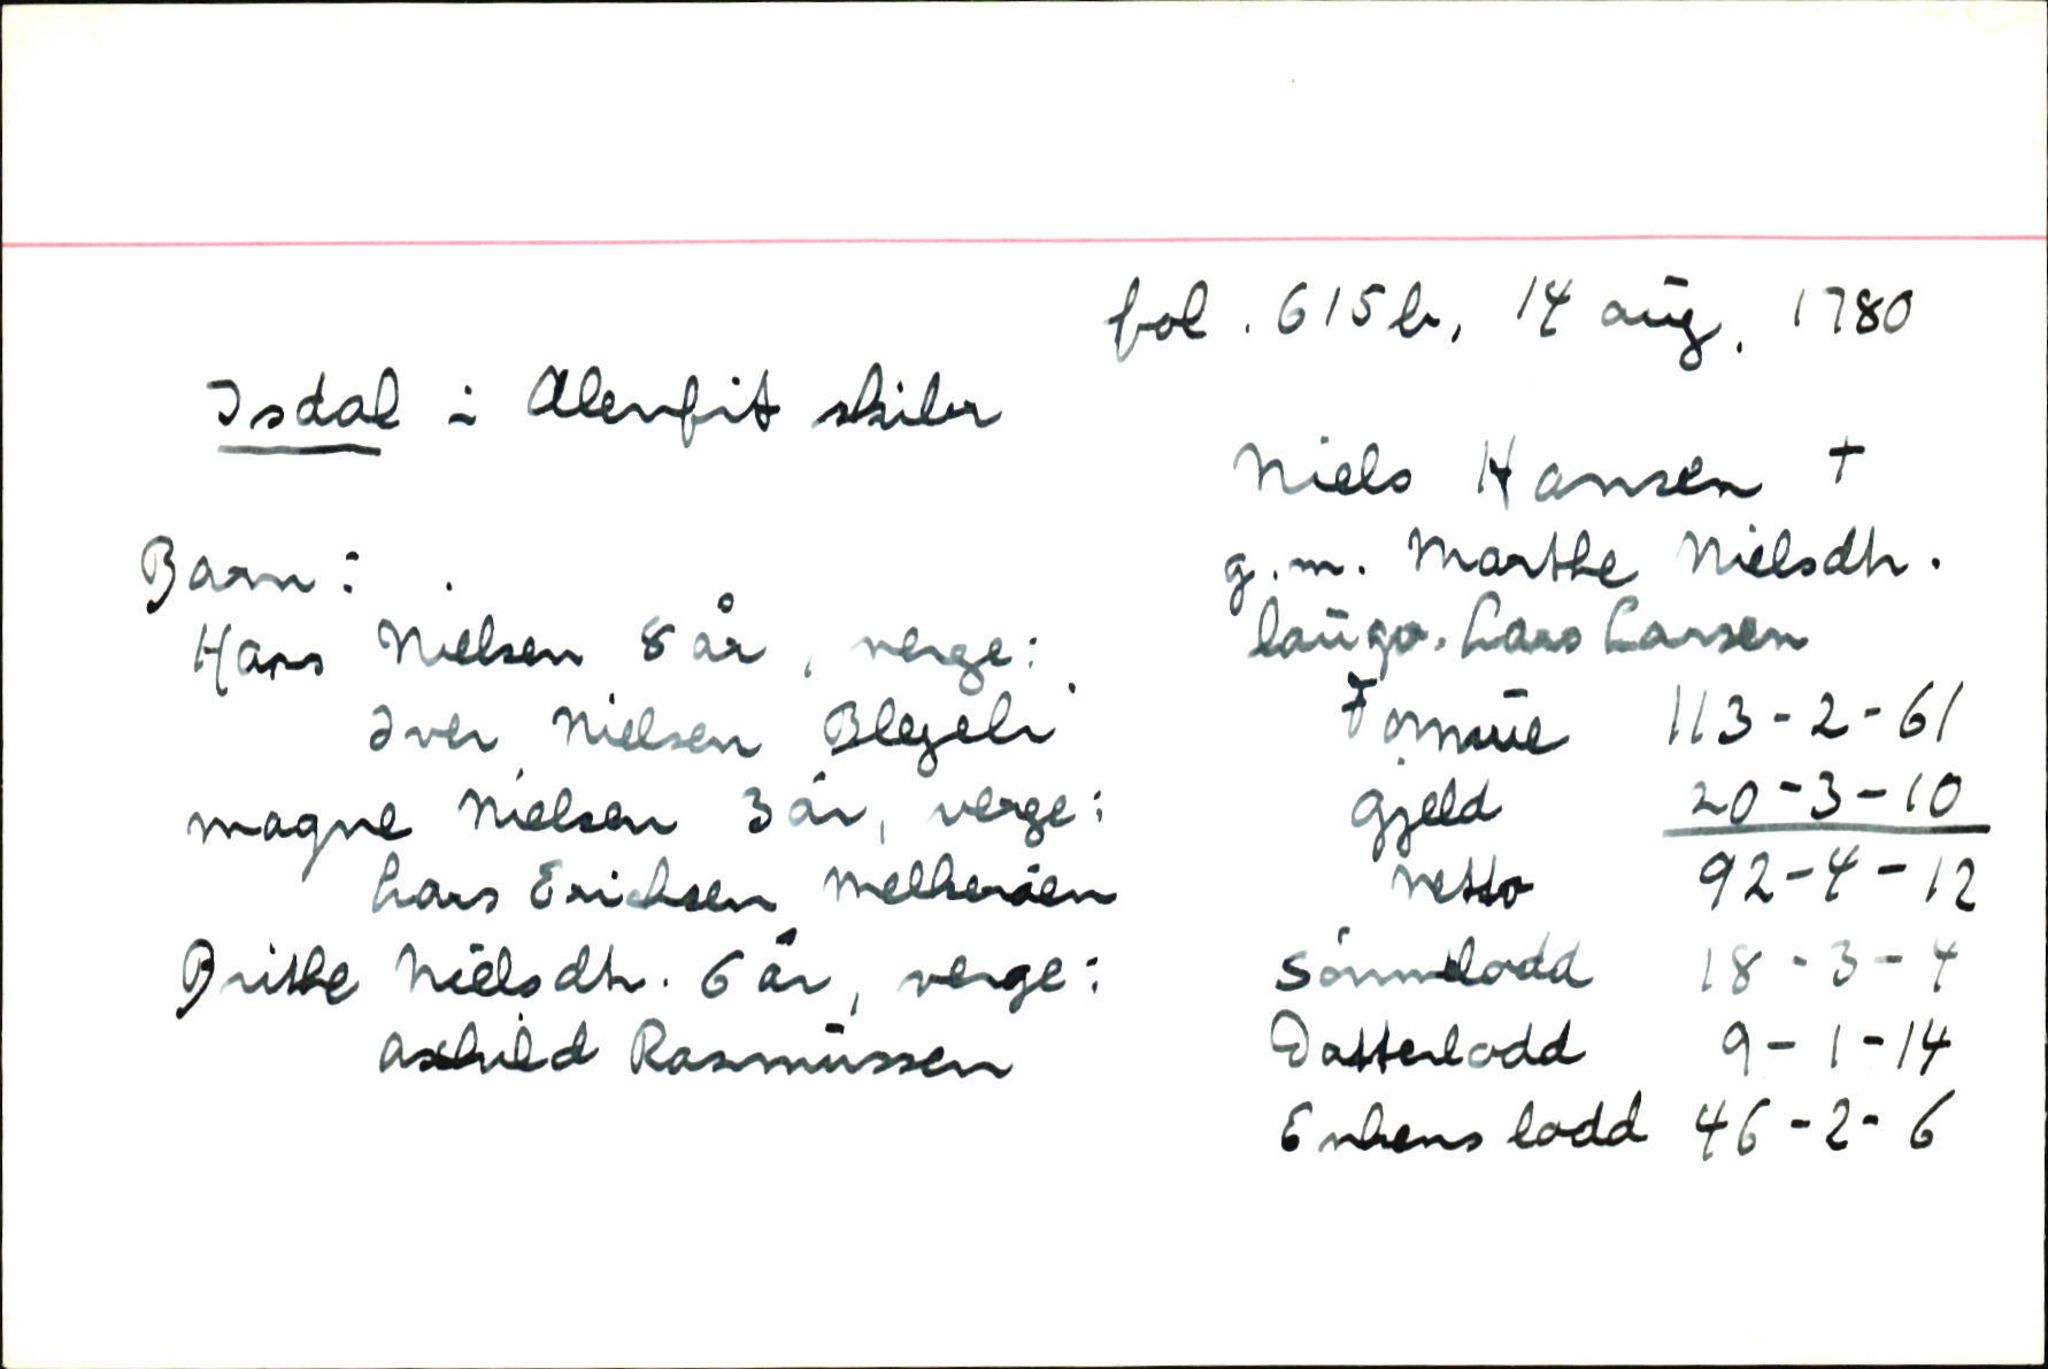 fol. 615b, 14 aug. 1780
Isdal i Alenfit skibr
Niels Hansen +
g.m. Marthe Nielsdtr.
laugv. Lars Larsen
Formue 113-2-61
Gjeld 20-3-10
Netto 92-4-12
Sønnelodd 18-3-4
Datterlodd 9-1-14
Enkens lodd 46-2-6
Barn:
Hans Nielsen 8 år, verge:
Iver Nielsen
Magne Nielsen 3 år, verge:
Lars Erichsen
Brithe Nielsdtr. 6 år, verge:
Rasmussen